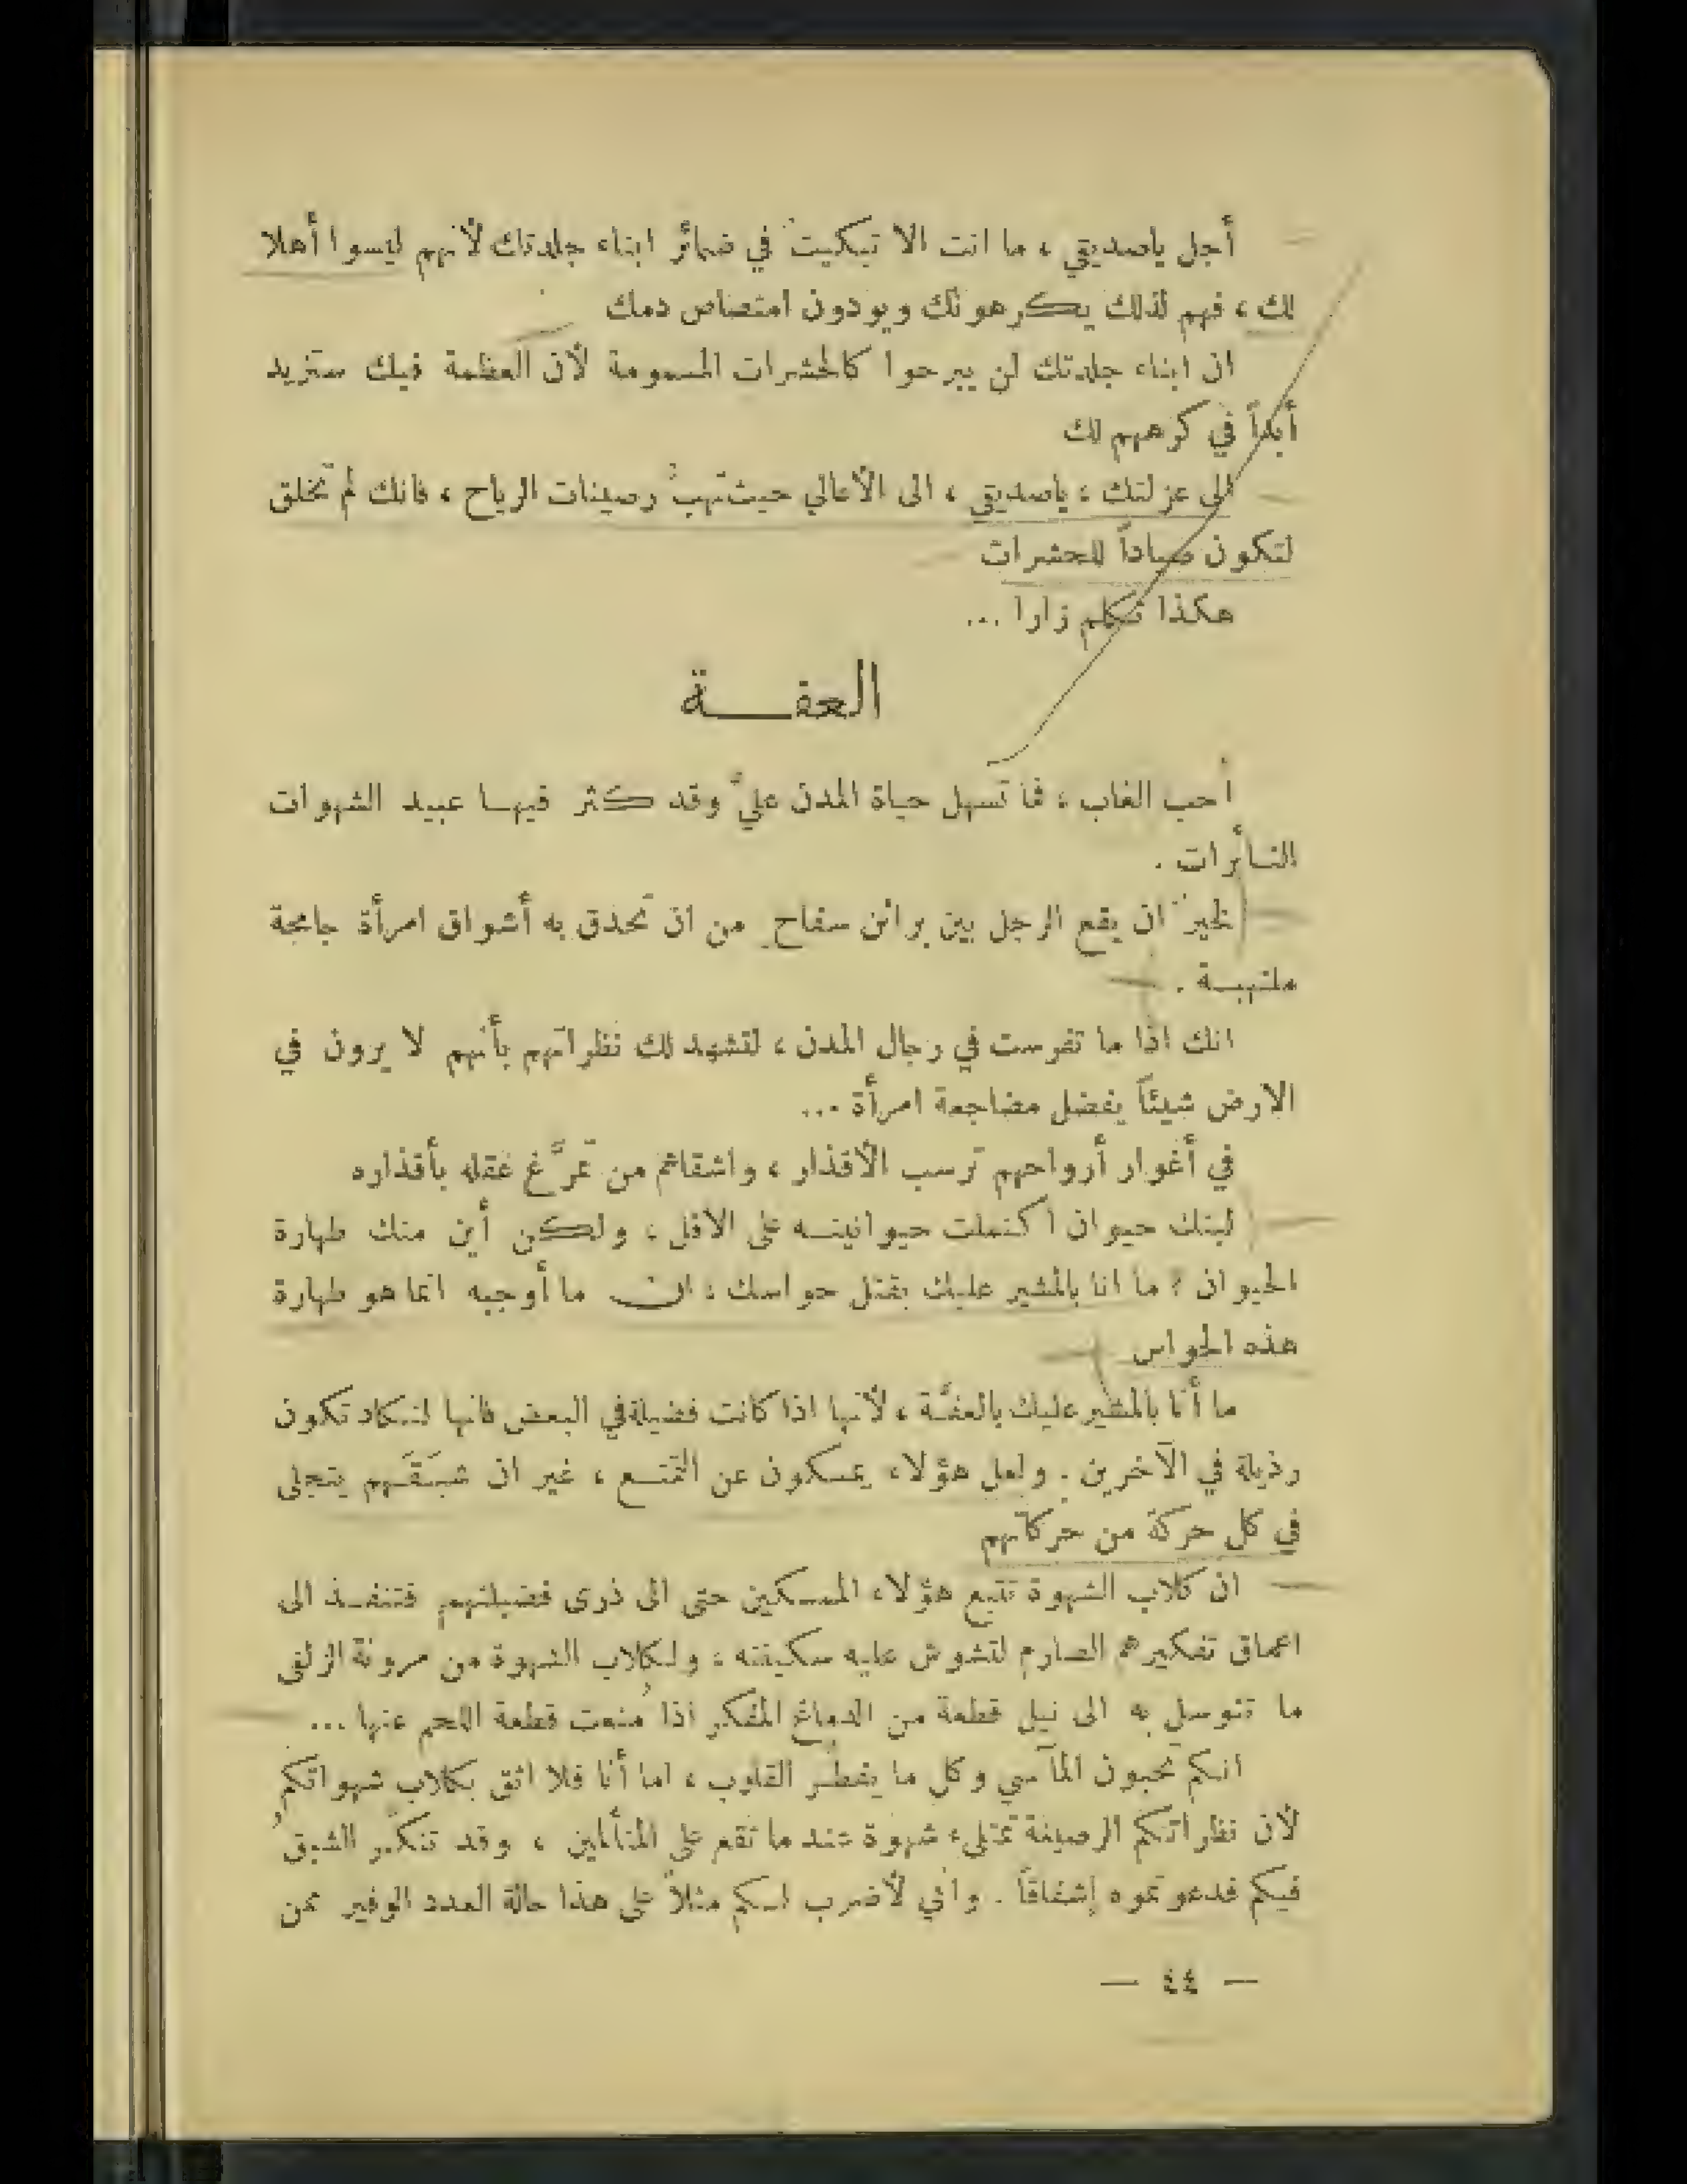 أجل ياصديقي ، ما انت الا تبكيتٌ في ضمائر ابناء جلدتك لأنهم ليسوا أهلا
لك ، فهم لذلك يكرهونك ويودون امتصاص دمك
ان ابناء جلدتك لن يبرحوا كالحشرات المسمومة لأن العظمة فيك ستزيد
أبداً في كرههم لك
الى عزلتك ، ياصديقي ، الى الأعالي حيث تهبُّ رصينات الرياح ، فانك لم تخلق
لتكون صياداً للحشرات
هكذا تكلم زارا ...
العفـــة
أحب الغاب ، فما تسهل حياة المدن عليَّ وقد كثر فيهـا عبيد الشهوات
الثـائرات .
لخيرٌ ان يقع الرجل بين براثن سفاح من ان تحدق به أشواق امرأة جامحة
ملتهبـة .
انك اذا ما تفرست في رجال المدن ، لتشهد لك نظراتهم بأنهم لا يرون في
الارض شيئاً يفضل مضاجعة امرأة ...
في أغوار أرواحهم ترسب الأقذار ، واشقاهم من تمرَّغ عقله بأقذاره
ليتك حيوان اكتملت حيوانيتـه على الاقل ، ولكن أين منك طهارة
الحيوان ؟ ما انا بالمشير عليك بقتل حواسك ، ان ما أوجبه انما هو طهارة
هذه الحواس
ما أنا بالمشير عليك بالعفَّـة ، لأنها اذا كانت فضيلة في البعض فانها لتـكاد تكون
رذيلة في الآخرين . ولعل هؤلاء يمسكون عن التمتـع ، غير ان شبَقَـهم يتجلى
في كل حركة من حركاتهم
ان كلاب الشهوة تتبع هؤلاء الممسكين حتى الى ذرى فضيلتهم فتنفـذ الى
اعماق تفكيرهم الصارم لتشوش عليه سكينته ، ولكلاب الشهوة من مرونة الزلفى
ما تتوسل به الى نيل قطعة من الدماغ المفكر اذا مُنعت قطعة اللحم عنها ...
انكم تحبون المآسي وكل ما يفطـر القلوب ، اما أنا فلا اثق بكلاب شهواتكم
لأن نظراتكم الرصينة تمتلىء شهوة عند ما تقع على المتألمين ، وقد تنكّـر الشبقُ
فيكم فدعوتموه إشفاقاً . واني لأضرب لـكم مثلاً على هذا حالة العدد الوفير ممن
— ٤٤ —